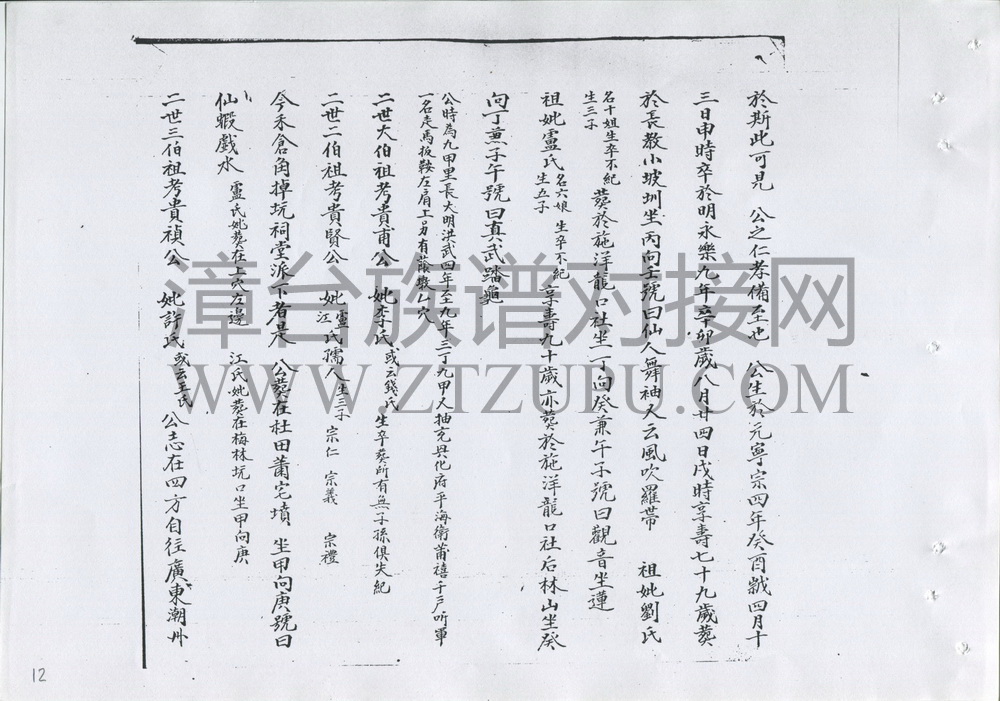 於斯此可見　公之仁孝備至也　公生於元寧宗四年癸酉歲四月十
三日申時卒於明永樂九年辛卯歲八月廿四日戌時享壽七十九歲葬
於長教小坡圳坐丙向壬號曰仙人舞袖又云風吹羅帶　祖妣劉氏
名十姐生卒不紀
生三子
葬於施洋龍口社坐丁向癸兼午子號曰觀音坐蓮
祖妣盧氏
名六娘　生卒不紀
生五子
享壽九十歲亦葬於施洋龍口社后林山坐癸
向丁兼子午號曰真武踏龜
公時為九甲里長大明洪武四年至九年三丁九甲又抽充興化府平海衛莆禧千戶所軍
一名走馬扳鞍左肩上另有墩么穴
二世大伯祖考貴甫公　妣李氏
或云錢氏
生卒葬所有無子孫俱失紀
二世二伯祖考貴賢公　妣
盧
江
氏孺人
生三子　宗仁　宗義　宗禮
今禾倉角掉坑祠堂派下者是　公葬在社田蕭宅墳　坐甲向庚號曰
仙蝦戲水
盧氏妣葬在上穴左邊　江氏妣葬在梅林坑口坐甲向庚
二世三伯祖考貴禎公　妣許氏
或云王氏
公志在四方自往廣東潮州
漳台族谱对接网
WWW.ZTZUPU.COM
12